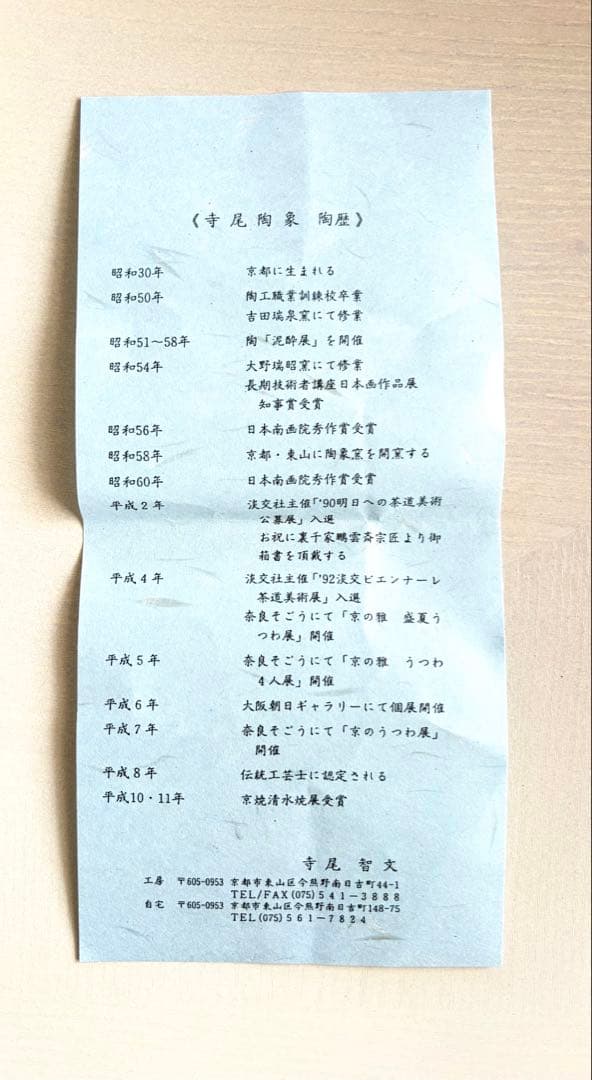 《寺尾陶象 陶歴》
昭和30年 京都に生まれる
昭和50年 陶工職業訓練校卒業
吉田瑞泉窯にて修業
昭和51〜58年 陶「泥酔展」を開催
昭和54年 大野瑞昭窯にて修業
長期技術者講座日本画作品展
知事賞受賞
昭和56年 日本南画院秀作賞受賞
昭和58年 京都・東山に陶象窯を開窯する
昭和60年 日本南画院秀作賞受賞
平成2年 淡交社主催「'90明日への茶道美術
公募展」入選
お祝に裏千家鵬雲斎宗匠より御
箱書を頂戴する
平成4年 淡交社主催「'92淡交ビエンナーレ
茶道美術展」入選
奈良そごうにて「京の雅 盛夏う
つわ展」開催
平成5年 奈良そごうにて「京の雅 うつわ
4人展」開催
平成6年 大阪朝日ギャラリーにて個展開催
平成7年 奈良そごうにて「京のうつわ展」
開催
平成8年 伝統工芸士に認定される
平成10・11年 京焼清水焼展受賞
寺尾智文
工房 〒605-0953 京都市東山区今熊野南日吉町44-1
TEL/FAX(075)541-3888
自宅 〒605-0953 京都市東山区今熊野南日吉町148-75
TEL(075)561-7824